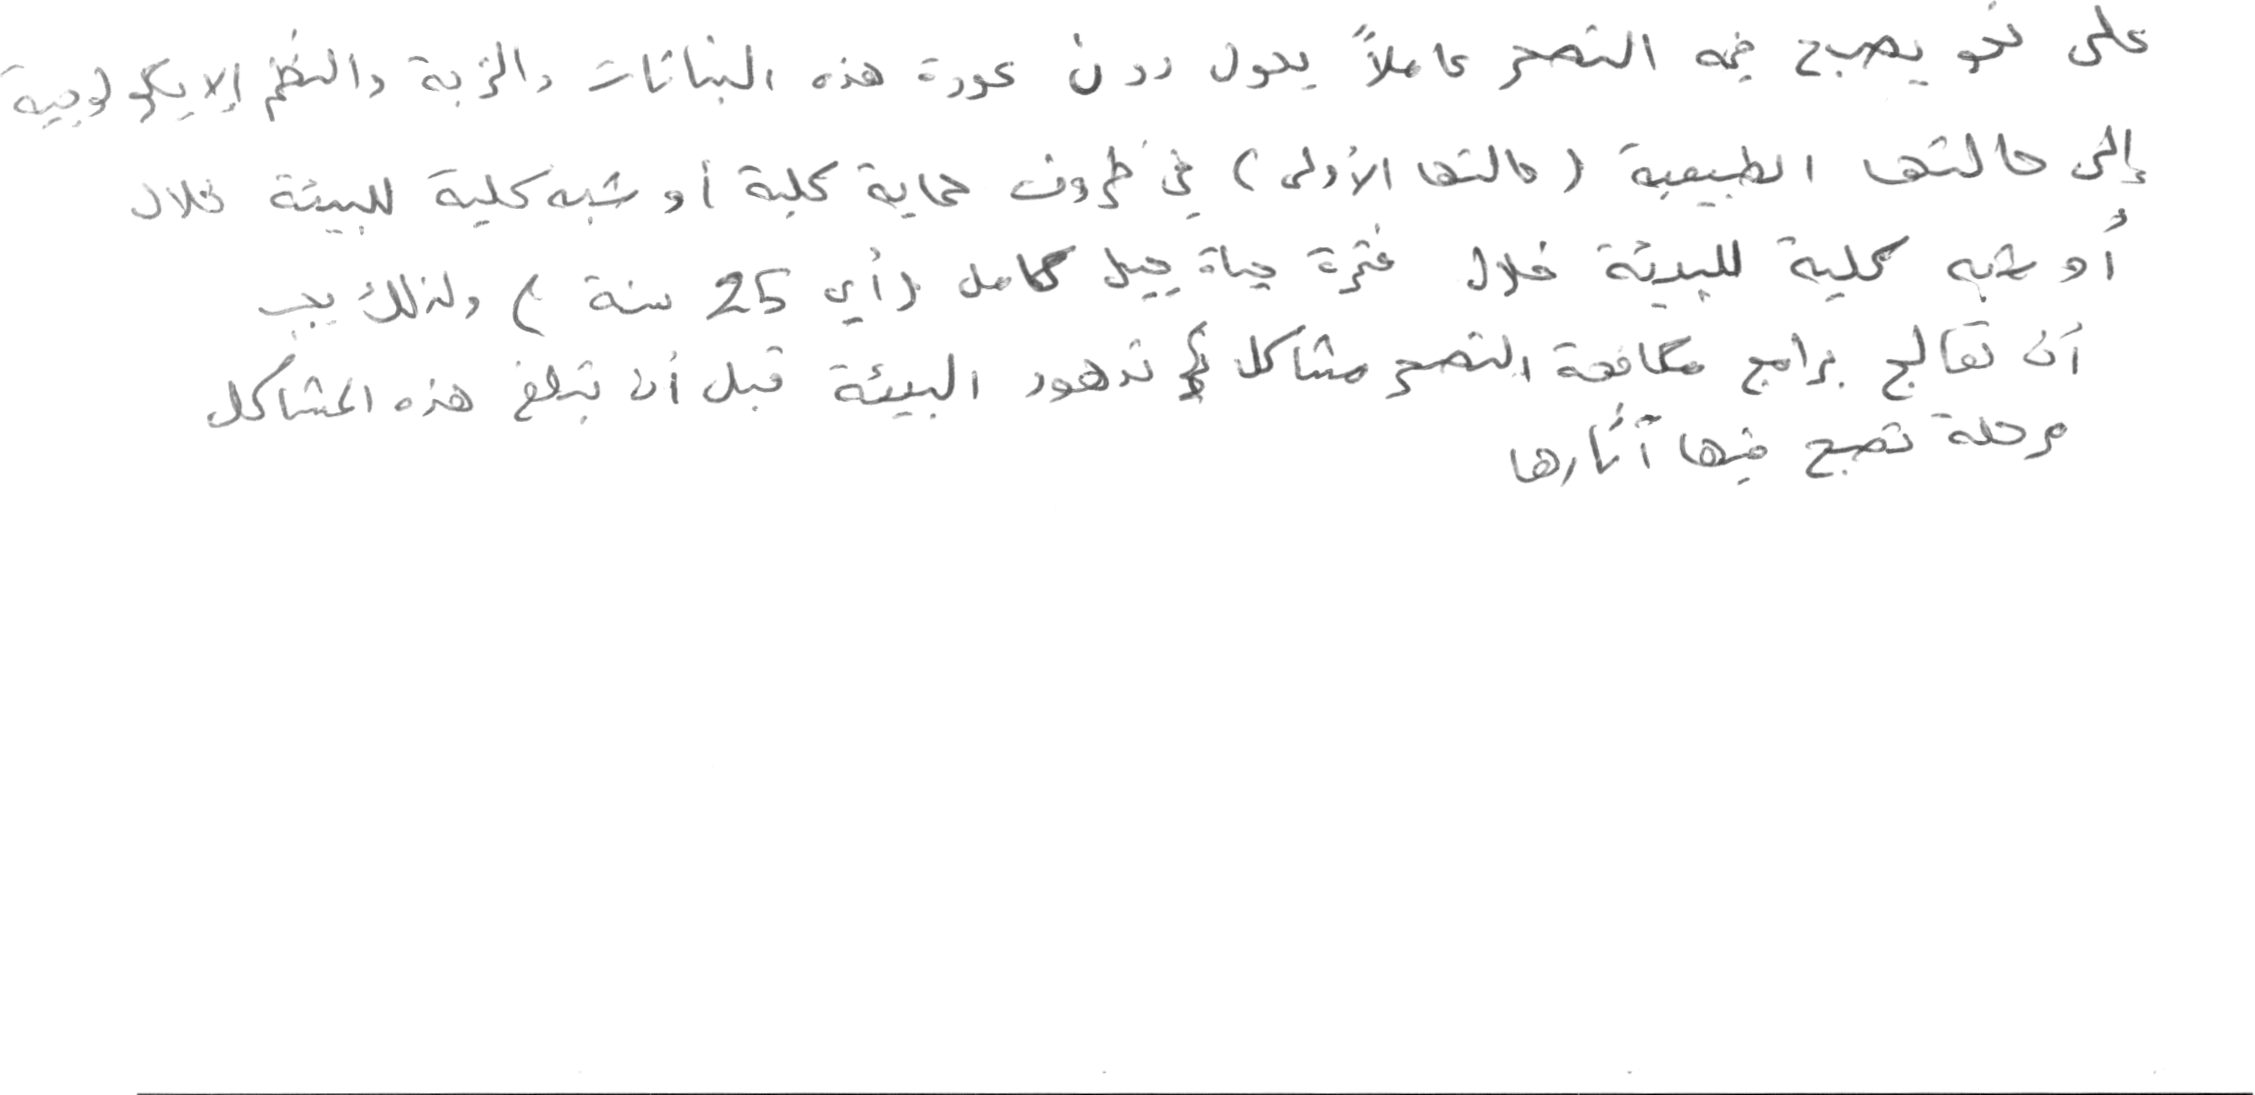 على نحو يصبح فيه التصحر عاملاً يحول دون عودة هذه النباتات والتربة والنظم الايكولوجية
إلى حالتها الطبيعية (حالتها الأولى) في ظروف حماية كلية أو شبه كلية للبيئة خلال
أو شبه كلية للبيئة خلال فترة حياة جيل كامل (أي 25 سنة) ولذلك يجب
أن تعالج برامج مكافحة التصحر مشاكل تدهور البيئة قبل أن تبلغ هذه المشاكل
مرحلة تصبح فيها آثارها